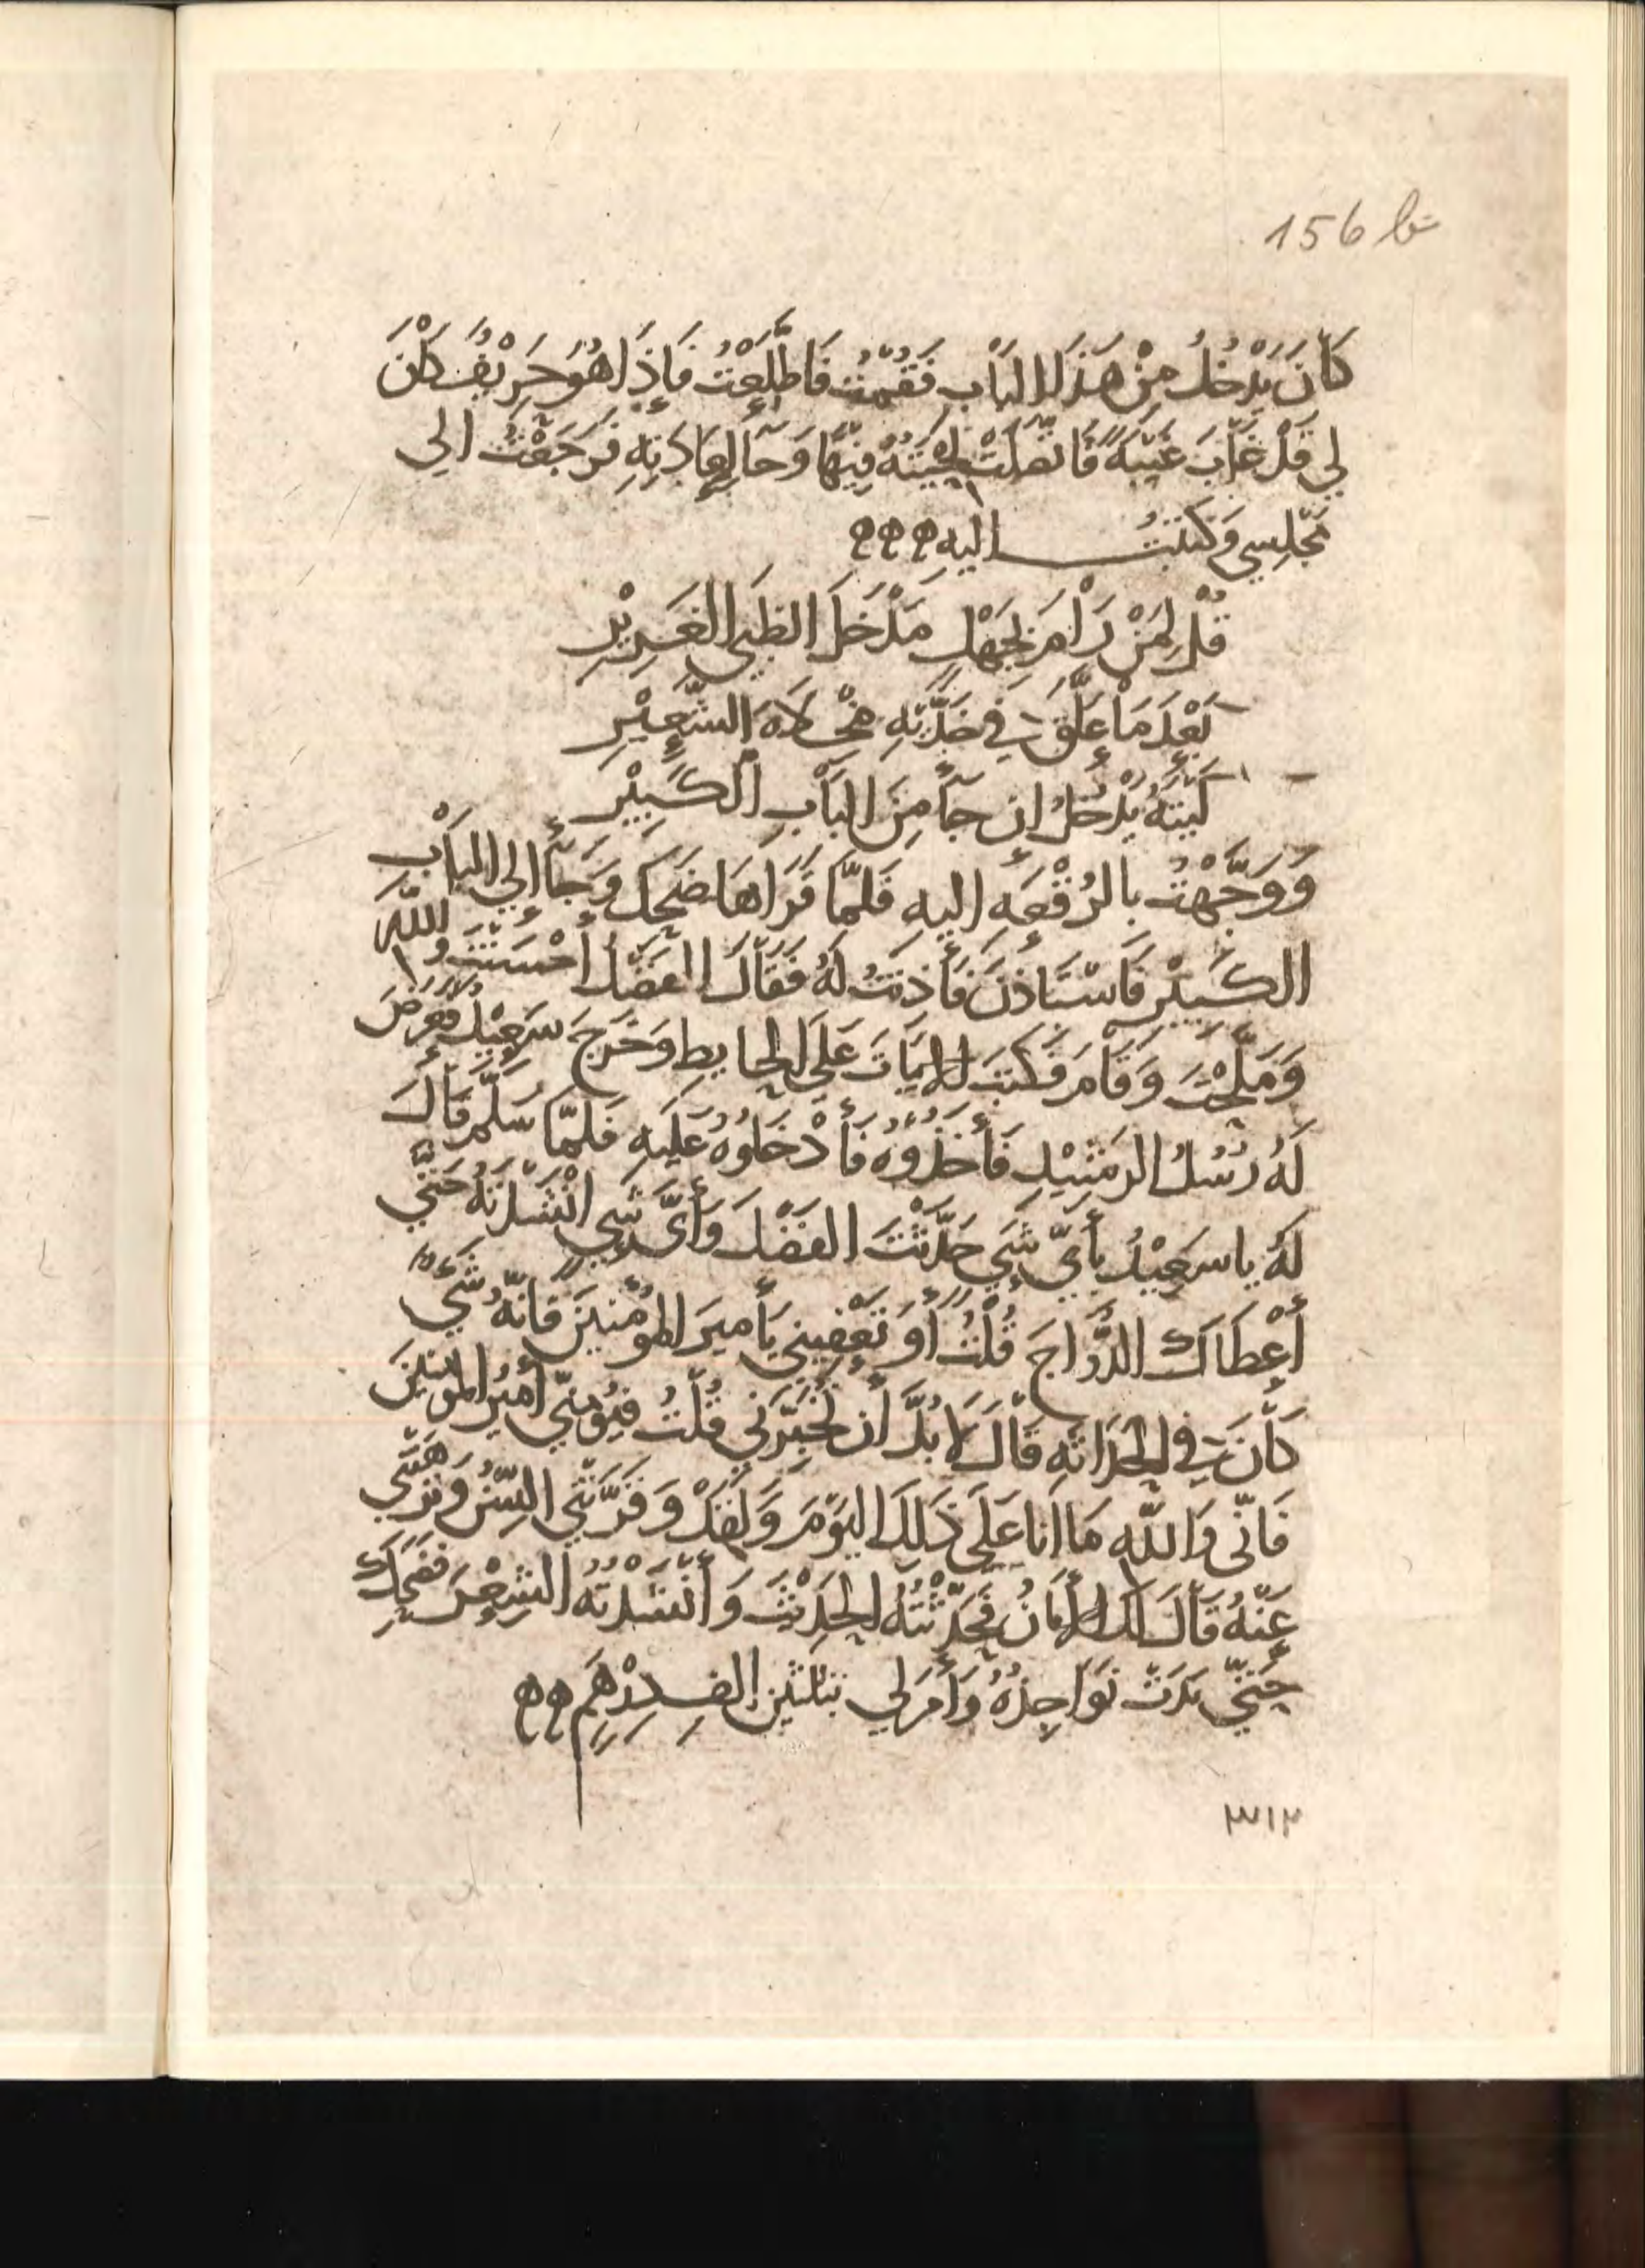 156 b
كَانَ يَدْخُلُ مِنْ هَذَا البَابِ فَقُمْتُ فَاطَّلَعْتُ فَإِذَا هُوَ حَرِيْفٌ كَانَ
لي قَدْ غَابَ غَيْبَةً فَاتَّصَلَتْ لِحْيَتُهُ فِيْهَا وَجَآ لِعَادَتِهِ فَرَجَعْتُ الي
مَجْلِسِي وَكَتَبْتُ اليه
قُلْ لِمَنْ رَامَ بِجَهْلٍ مَدْخَلَ الظَبْيِ الغَرِيْرِ
بَعْدَ مَا عَلَّقَ في خَدَّيْهِ مِخْلاَةَ الشَّعِيْرِ
لَيْتَهُ يَدْخُلُ ان جَآ مِنَ البَابِ الكَبِيْرِ
وَوَجَّهْتُ بالرُقْعَهِ اليهِ فَلمّا قَرَاهَا ضَحِكَ وَجَآ إلي البَابِ
الكَبِيْرِ فَاسْتَأذَنَ فَأَذِنتُ لَهُ فَقَالَ الفَضْلُ أَحْسَنْتَ واللهِ
وَمَلَّحْتَ وَقَامَ فَكَتبَ الابْيَاتَ عَلَي الحايِطِ وَخَرَجَ سَعِيْدٌ فَعَرَضَ
لَهُ رُسُلُ الرشِيْدِ فَأَخَذُوْهُ فَأَدْخَلُوْهُ عَلَيهِ فَلمّا سَلَّمَ قَالَ
لَهُ يا سَعِيْدُ بأَيّ شَيٍ حَدَّثْتَ الفَضْلَ وَأَيَّ شَيٍ انْشَدْتَهُ حَتّي
أَعْطَاكَ الدُّرَّاجَ قُلْتُ أَوَ تَعْفِيني يَأمِيرَ المُؤْمنينَ فَانّهُ شَيٌ
كَانَ في الحَدَاثَهِ قَالَ لاَ بُدَّ أَن تُخَبِّرَني قُلْتُ فيُؤمنّي أَمِيْرُ المُؤمنِينَ
فَانّي وَاللهِ مَا انا عَلَي ذَلِكَ اليَوْمَ وَلَقَدْ وَقَّرَتْني السِّنُ وَنزّهَتْني
عَنْهُ قَالَ لَكَ الأمَانُ فَحَدَّثْتُهُ الحَدِيْثَ وَأَنْشَدْتُهُ الشِعْرَ فَضَحِكَ
حَتّي بَدَتْ نَوَاجِذُهُ وَأَمَرَ لي بثلثين الف دِرْهَمٍ
٣١٢